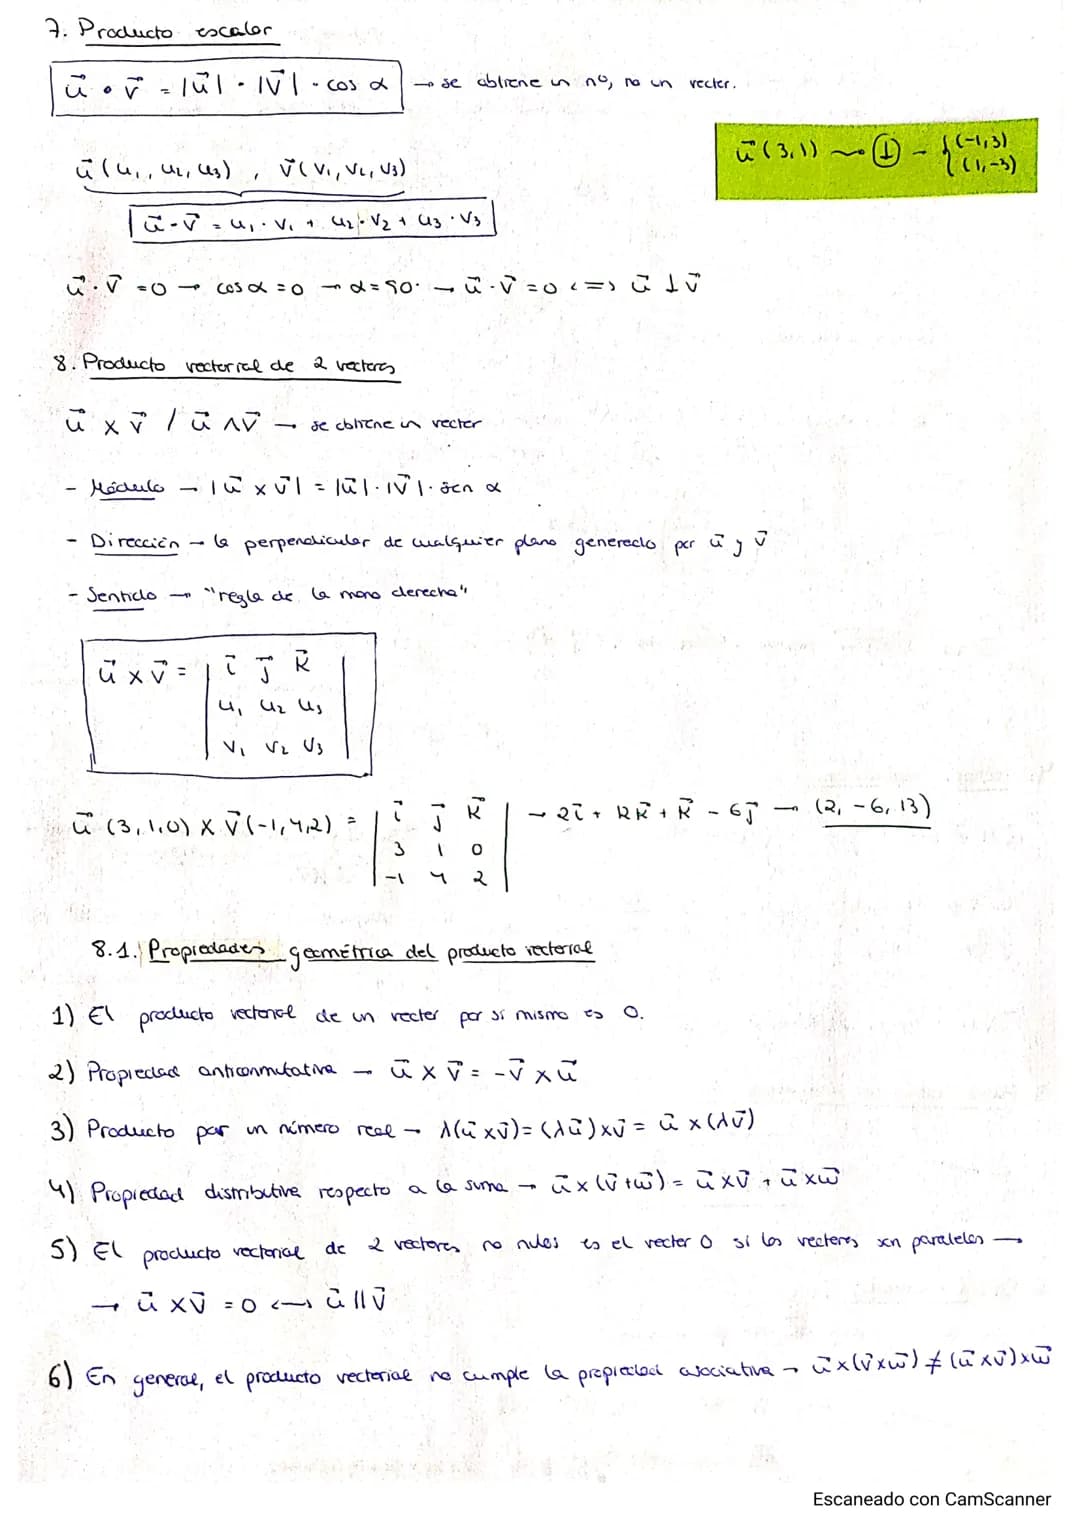 7. Producto escalar
u⃗ · v⃗ = |u⃗| · |v⃗| · cos α → se obtiene un nº, no un vector.
u⃗ (3,1) → ⊥ - { (-1,3) (1,-3)
u⃗ (u₁, u₂, u₃) , v⃗ (v₁, v₂, v₃)
u⃗ · v⃗ = u₁ · v₁ + u₂ · v₂ + u₃ · v₃
u⃗ · v⃗ = 0 → cos α = 0 → α = 90° → u⃗ · v⃗ = 0 <=> u⃗ ⊥ v⃗
8. Producto vectorial de 2 vectores
u⃗ × v⃗ / u⃗ ∧ v⃗ → se obtiene un vector
- Módulo → |u⃗ × v⃗| = |u⃗| · |v⃗| · sen α
- Dirección → la perpendicular de cualquier plano generado por u⃗ y v⃗
- Sentido → "regla de la mano derecha"
u⃗ × v⃗ = | i⃗ j⃗ k⃗ |
u₁ u₂ u₃
v₁ v₂ v₃
u⃗ (3,1,0) × v⃗ (-1,4,2) = | i⃗ j⃗ k⃗ | → 2i⃗ + 12k⃗ + k⃗ - 6j⃗ → (2, -6, 13)
3 1 0
-1 4 2
8.1. Propiedades geométrica del producto vectorial
1) El producto vectorial de un vector por sí mismo es 0.
2) Propiedad anticonmutativa → u⃗ × v⃗ = -v⃗ × u⃗
3) Producto por un número real → λ(u⃗ × v⃗) = (λu⃗) × v⃗ = u⃗ × (λv⃗)
4) Propiedad distributiva respecto a la suma → u⃗ × (v⃗ + w⃗) = u⃗ × v⃗ + u⃗ × w⃗
5) El producto vectorial de 2 vectores no nulos es el vector 0 si los vectores son paralelos →
→ u⃗ × v⃗ = 0 <—> u⃗ || v⃗
6) En general, el producto vectorial no cumple la propiedad asociativa → u⃗ × (v⃗ × w⃗) ≠ (u⃗ × v⃗) × w⃗
Escaneado con CamScanner